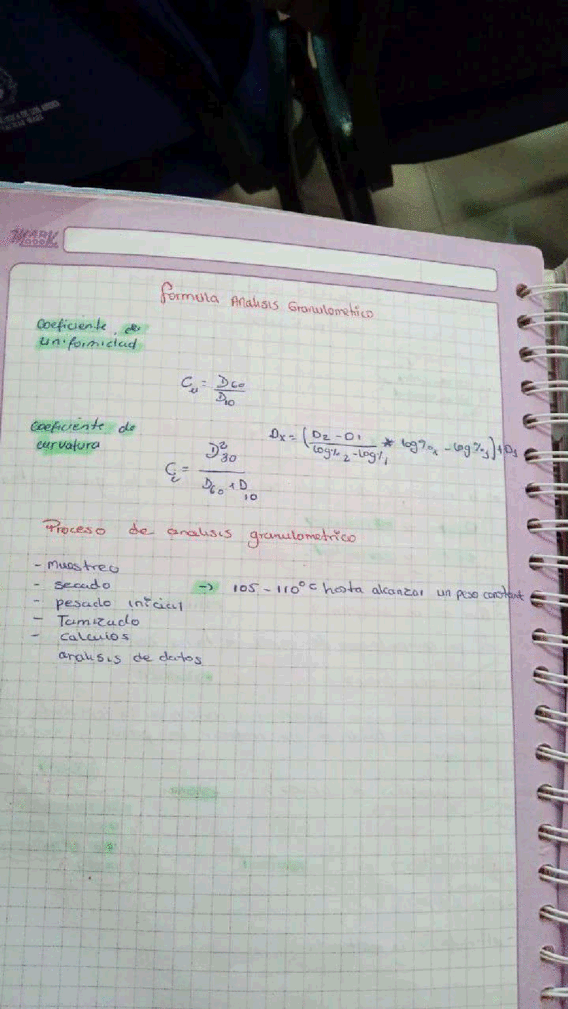 formula Analisis Granulometrico
Coeficiente de
uniformidad
Cu = D60 / D10
Coeficiente de
curvatura
Dx = (D2 - D1 / log%2 - log%1 * log%x - log%1) + D1
Cc = D²30 / D60 * D10
Proceso de analisis granulometrico
- Muestreo
- secado → 105 - 110°C hasta alcanzar un peso constant
- pesado inicial
- Tamizado
- calculos
analisis de datos